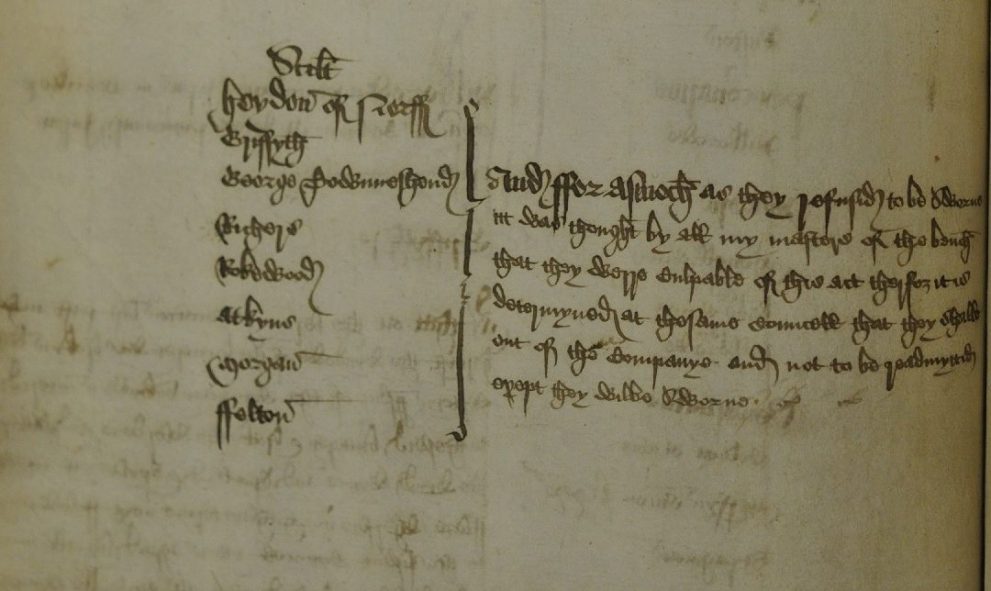 Scilt
heydon of Norff
Gryffyth
George Podmneshend
Richers
Rokewood
Atkyns
Morgan
ffelton
And ffor asmoch as they refusid to be Sworne
itt was thought by all my masters of the bench
that they werre culpable of this act therfor it is
determyned at thesame councell that they shalbe
out of the companye and not to be readmyttid
except they wilbe Sworne